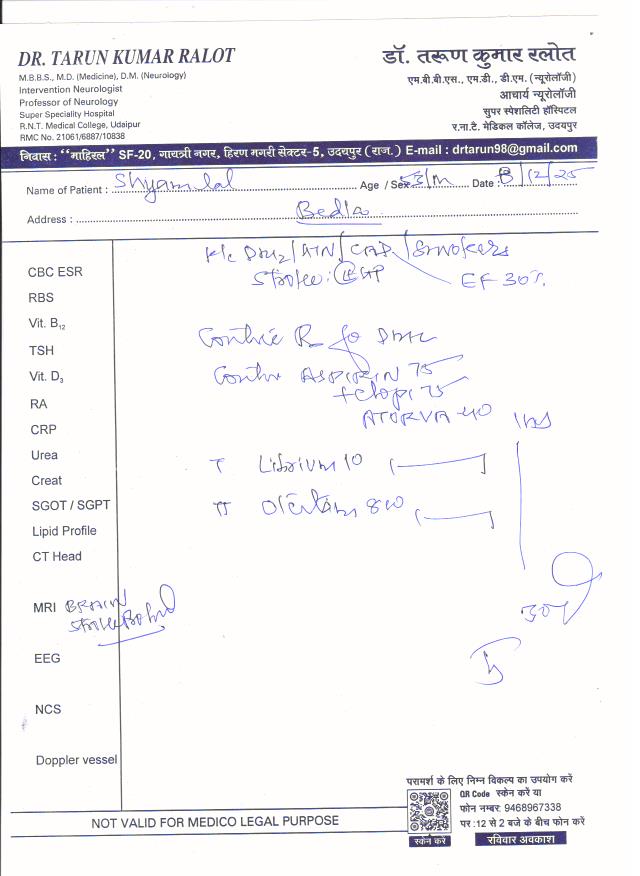 DR. TARUN KUMAR RALOT
M.B.B.S., M.D. (Medicine), D.M. (Neurology)
Intervention Neurologist
Professor of Neurology
Super Speciality Hospital
R.N.T. Medical College, Udaipur
RMC No. 21061/6887/10838
डॉ. तरूण कुमार रलोत
एम.बी.बी.एस., एम.डी., डी.एम. (न्यूरोलॉजी)
आचार्य न्यूरोलॉजी
सुपर स्पेशलिटी हॉस्पिटल
र.ना.टे. मेडिकल कॉलेज, उदयपुर
निवास : “माहिरल” SF-20, गायत्री नगर, हिरण मगरी सेक्टर-5, उदयपुर (राज.) E-mail : drtarun98@gmail.com
Name of Patient : Shyamlal Age / Sex /M Date : 8/12/25
Address : Bedla
K/c DM2/HTN/CAD/Smokers
Stroke: EF 30%
CBC ESR
RBS
Vit. B12
TSH
Vit. D3
RA
CRP
Urea
Creat
SGOT / SGPT
Lipid Profile
CT Head
MRI BRAIN
Stroke
EEG
NCS
Doppler vessel
Continue R for
Continue ASPIRIN 75
+ clopi 75
ATORVA 40
T Librium 10
800
NOT VALID FOR MEDICO LEGAL PURPOSE
परामर्श के लिए निम्न विकल्प का उपयोग करें
QR Code स्केन करें या
फोन नम्बर: 9468967338
पर :12 से 2 बजे के बीच फोन करें
स्केन करें
रविवार अवकाश